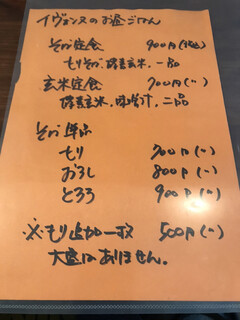 イヴェンヌのお昼ごはん
そば定食 900円(税込)
もりそば、酵素玄米、一品
玄米定食 700円(〃)
酵素玄米、味噌汁、二品
そば単品
もり 700円(〃)
おろし 800円(〃)
とろろ 900円(〃)
※もり追加一枚 500円(〃)
大盛はありません。